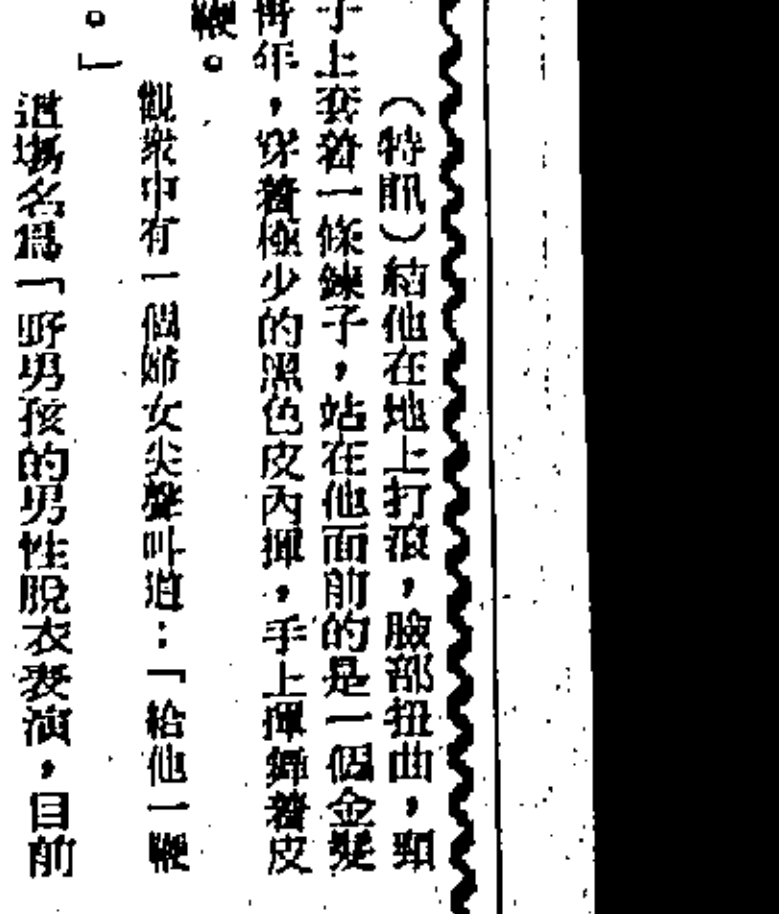 （特訊）結他在地上打滾，臉部扭曲，頸
子上套着一條鍊子，站在他面前的是一個金髮
青年，穿着極少的黑色皮內揮，手上揮舞着皮
鞭。
觀衆中有一個婦女尖聲叫道：「給他一鞭
。」
這場名爲「野男孩的男性脫衣表演，目前